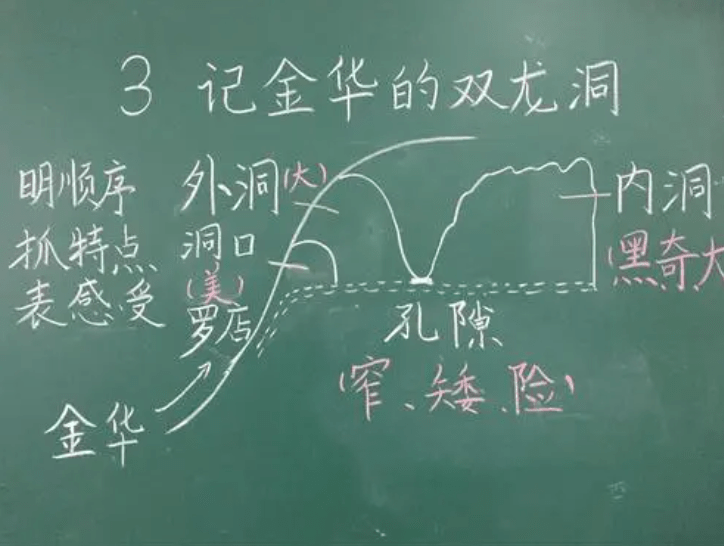 3 记金华的双龙洞
明顺序
抓特点
表感受
外洞(大)
洞口
(美)
罗店
金华
孔隙
(窄、矮、险)
内洞
(黑奇大